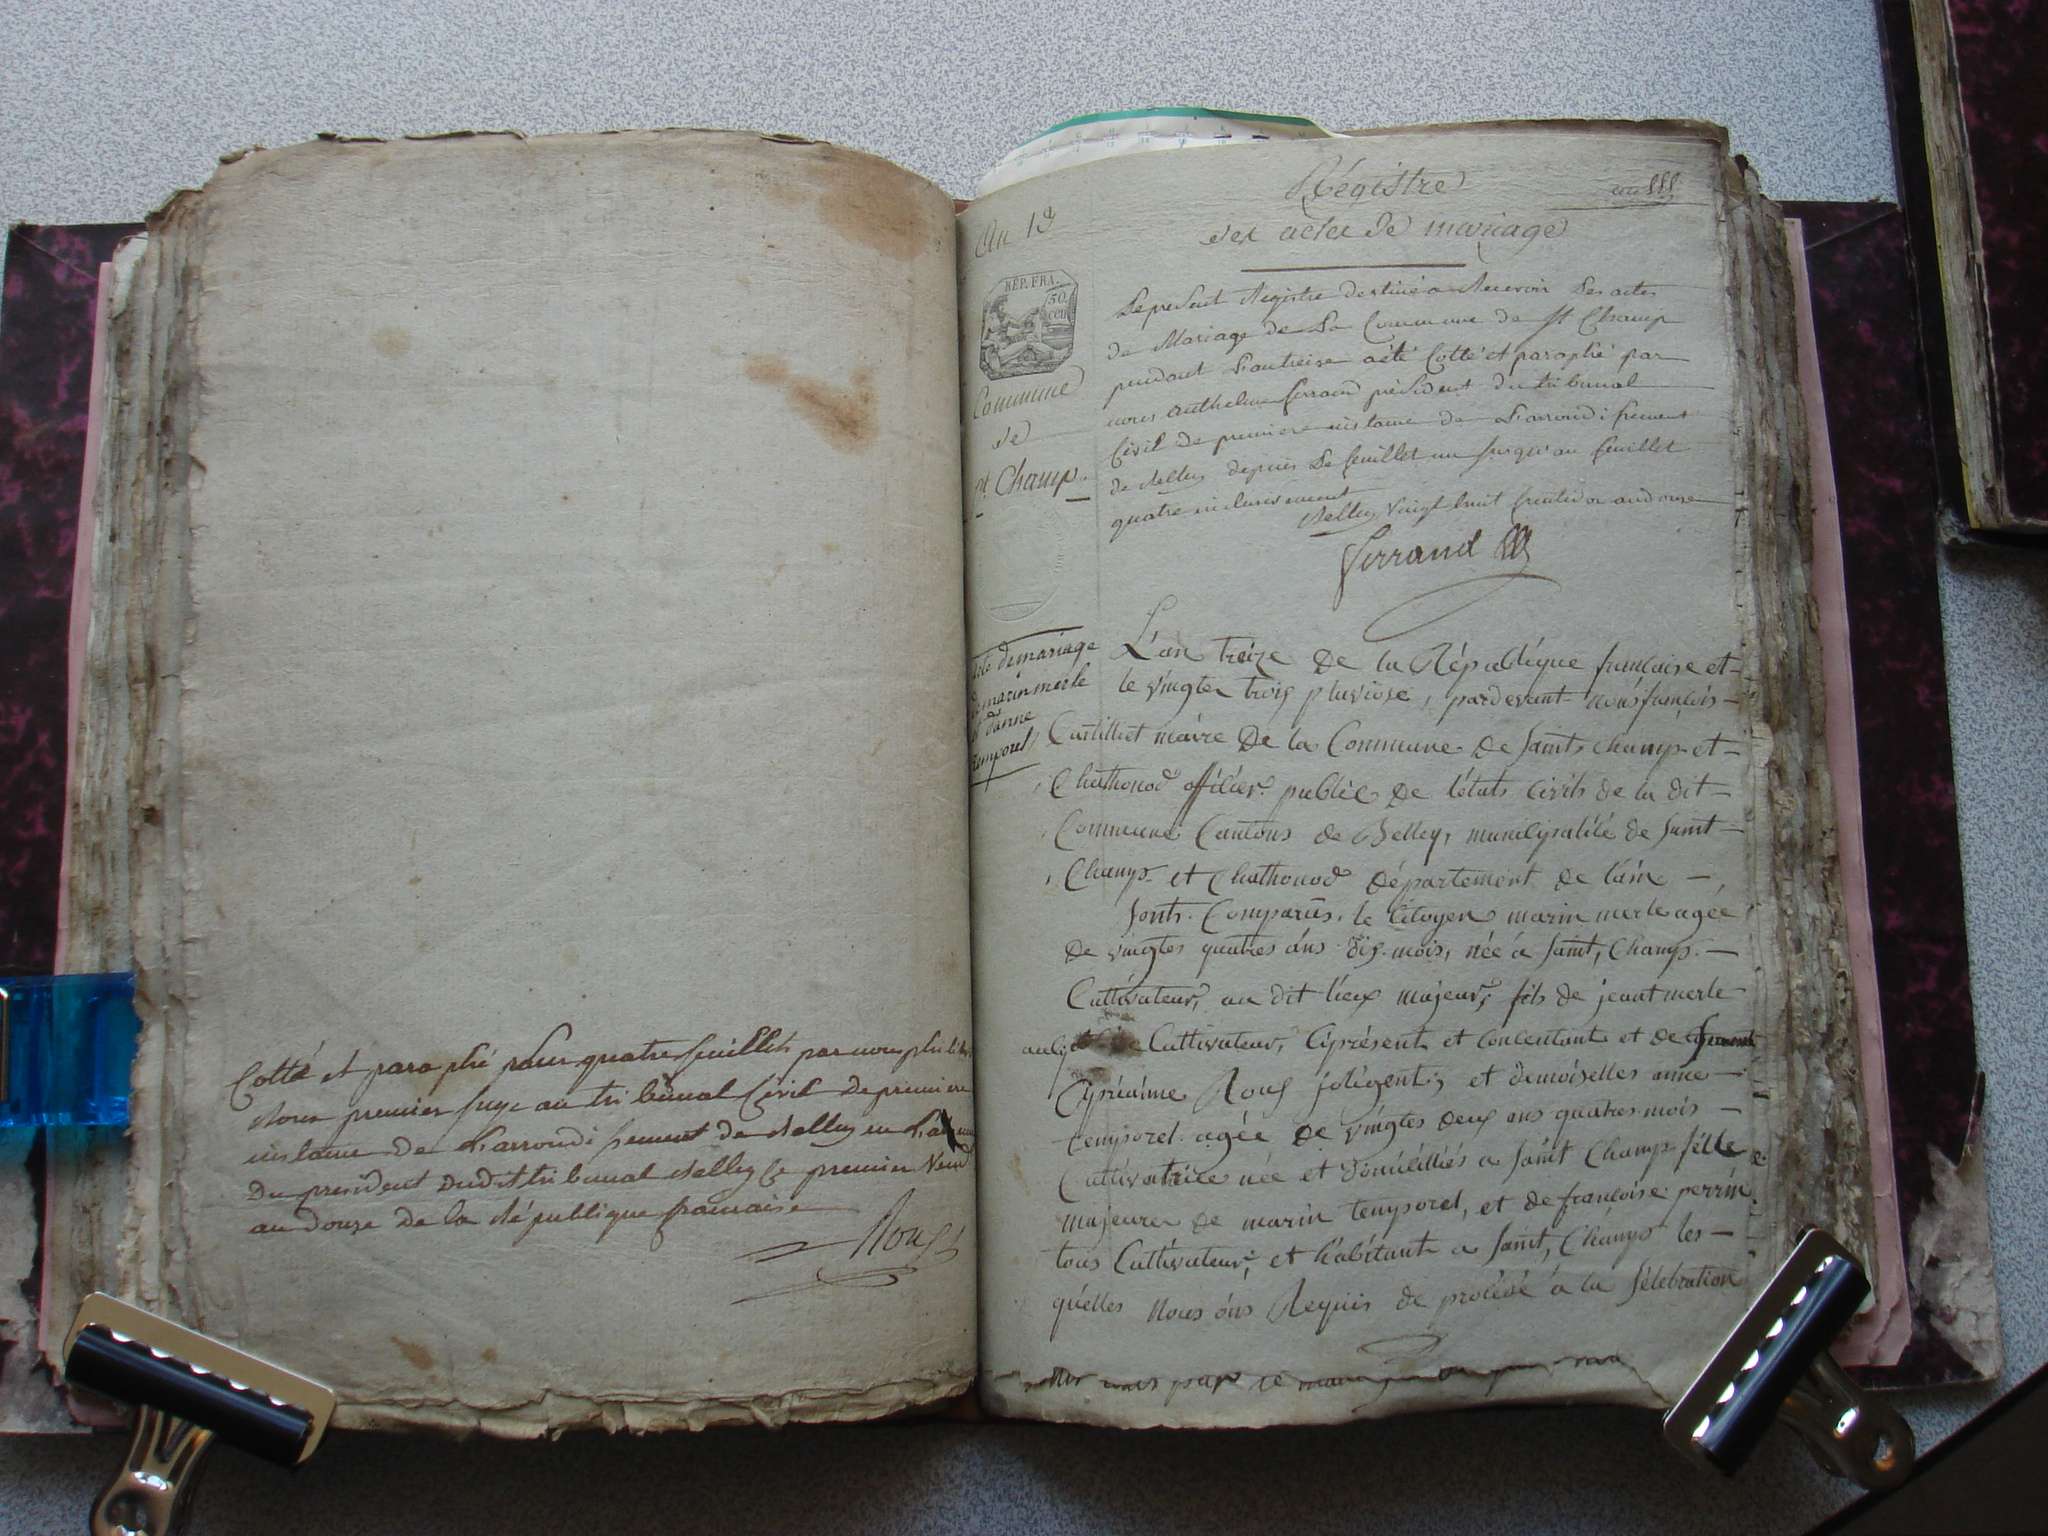 Cotté et paraphé pour quatre feuillets par nous philibert
Roux premier juge au tribunal Civil de premiere
instance de L'arrondissement de Belley en
Du president dudit tribunal Belley le premier Vend
an douze de la république française
Roux
An 13
REP. FRA.
50 cen
Commune
de
St Champ.
Régistre
des actes de mariage
Le present Régistre destiné a Recevoir Les actes
de Mariage de La Commune de St Champ
pendant L'an treize a été Cotté et paraphé par
nous Anthelme Ferrand président du tribunal
Civil de premiere instance de L'arrondissement
de Belley depuis Le feuillet un jusqu'au feuillet
quatre inclusivement
Belley Vingt huit fructidor an douze
Ferrand
Acte de mariage
de marin merle
et danne
temporel
L'an treize de la République française et
le vingtes trois pluviose, pardevant nous françois
Cutilliet maire De la Commune de Saint, champ et
Chathonod officier public De l'états civils de la dit
Commune Cantons de Belley, municipalité de Saint
Champ et Chathonod département de l'ain
Sonts Comparus, le Citoyen marin merle agée
de vingtes quatres ans dix mois, née a Saint, Champ.
Cultivateur, au dit lieux majeur, fils de jeant merle
Cultivateur, Ciprésent et concentant et de
Cipriánne Roux et demoiselles anne
temporel agée de vingtes deux ans quatres mois
Cultivatrice née et domicilliés a Saint Champ fille
majeure de marin temporel, et de françoise perrin
tous Cultivateur, et habitant a Saint, Champ les
quelles nous ons Requis de procédé a la Sélebration